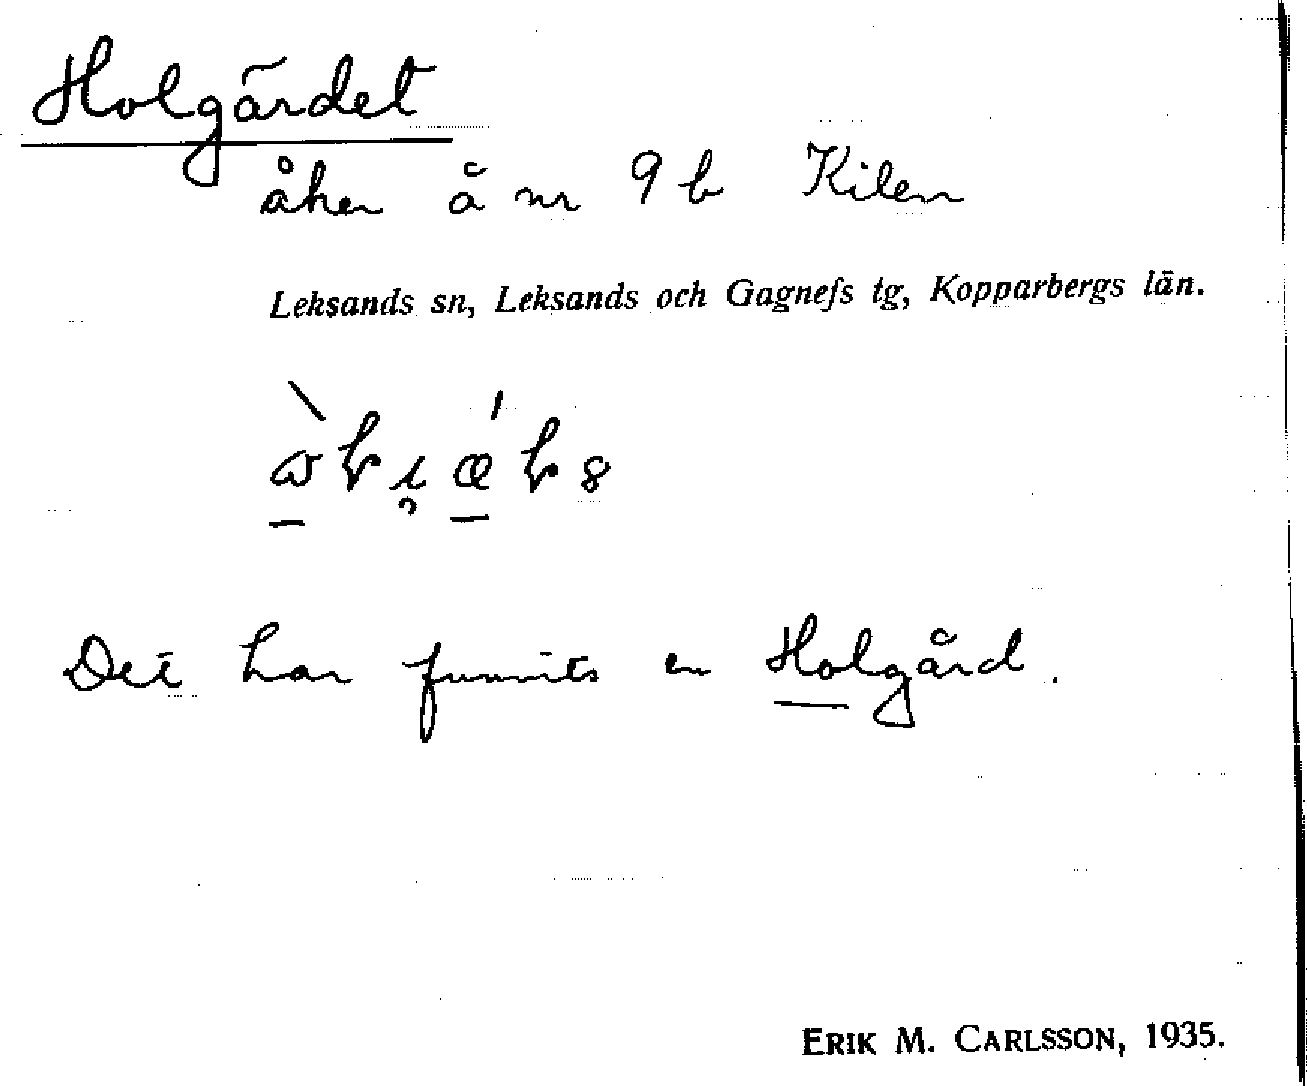 Holgärdet
åker å nr 9 b Kilen
Leksands sn, Leksands och Gagnefs tg, Kopparbergs län.
Det har funnits en Holgård.
ERIK M. CARLSSON, 1935.